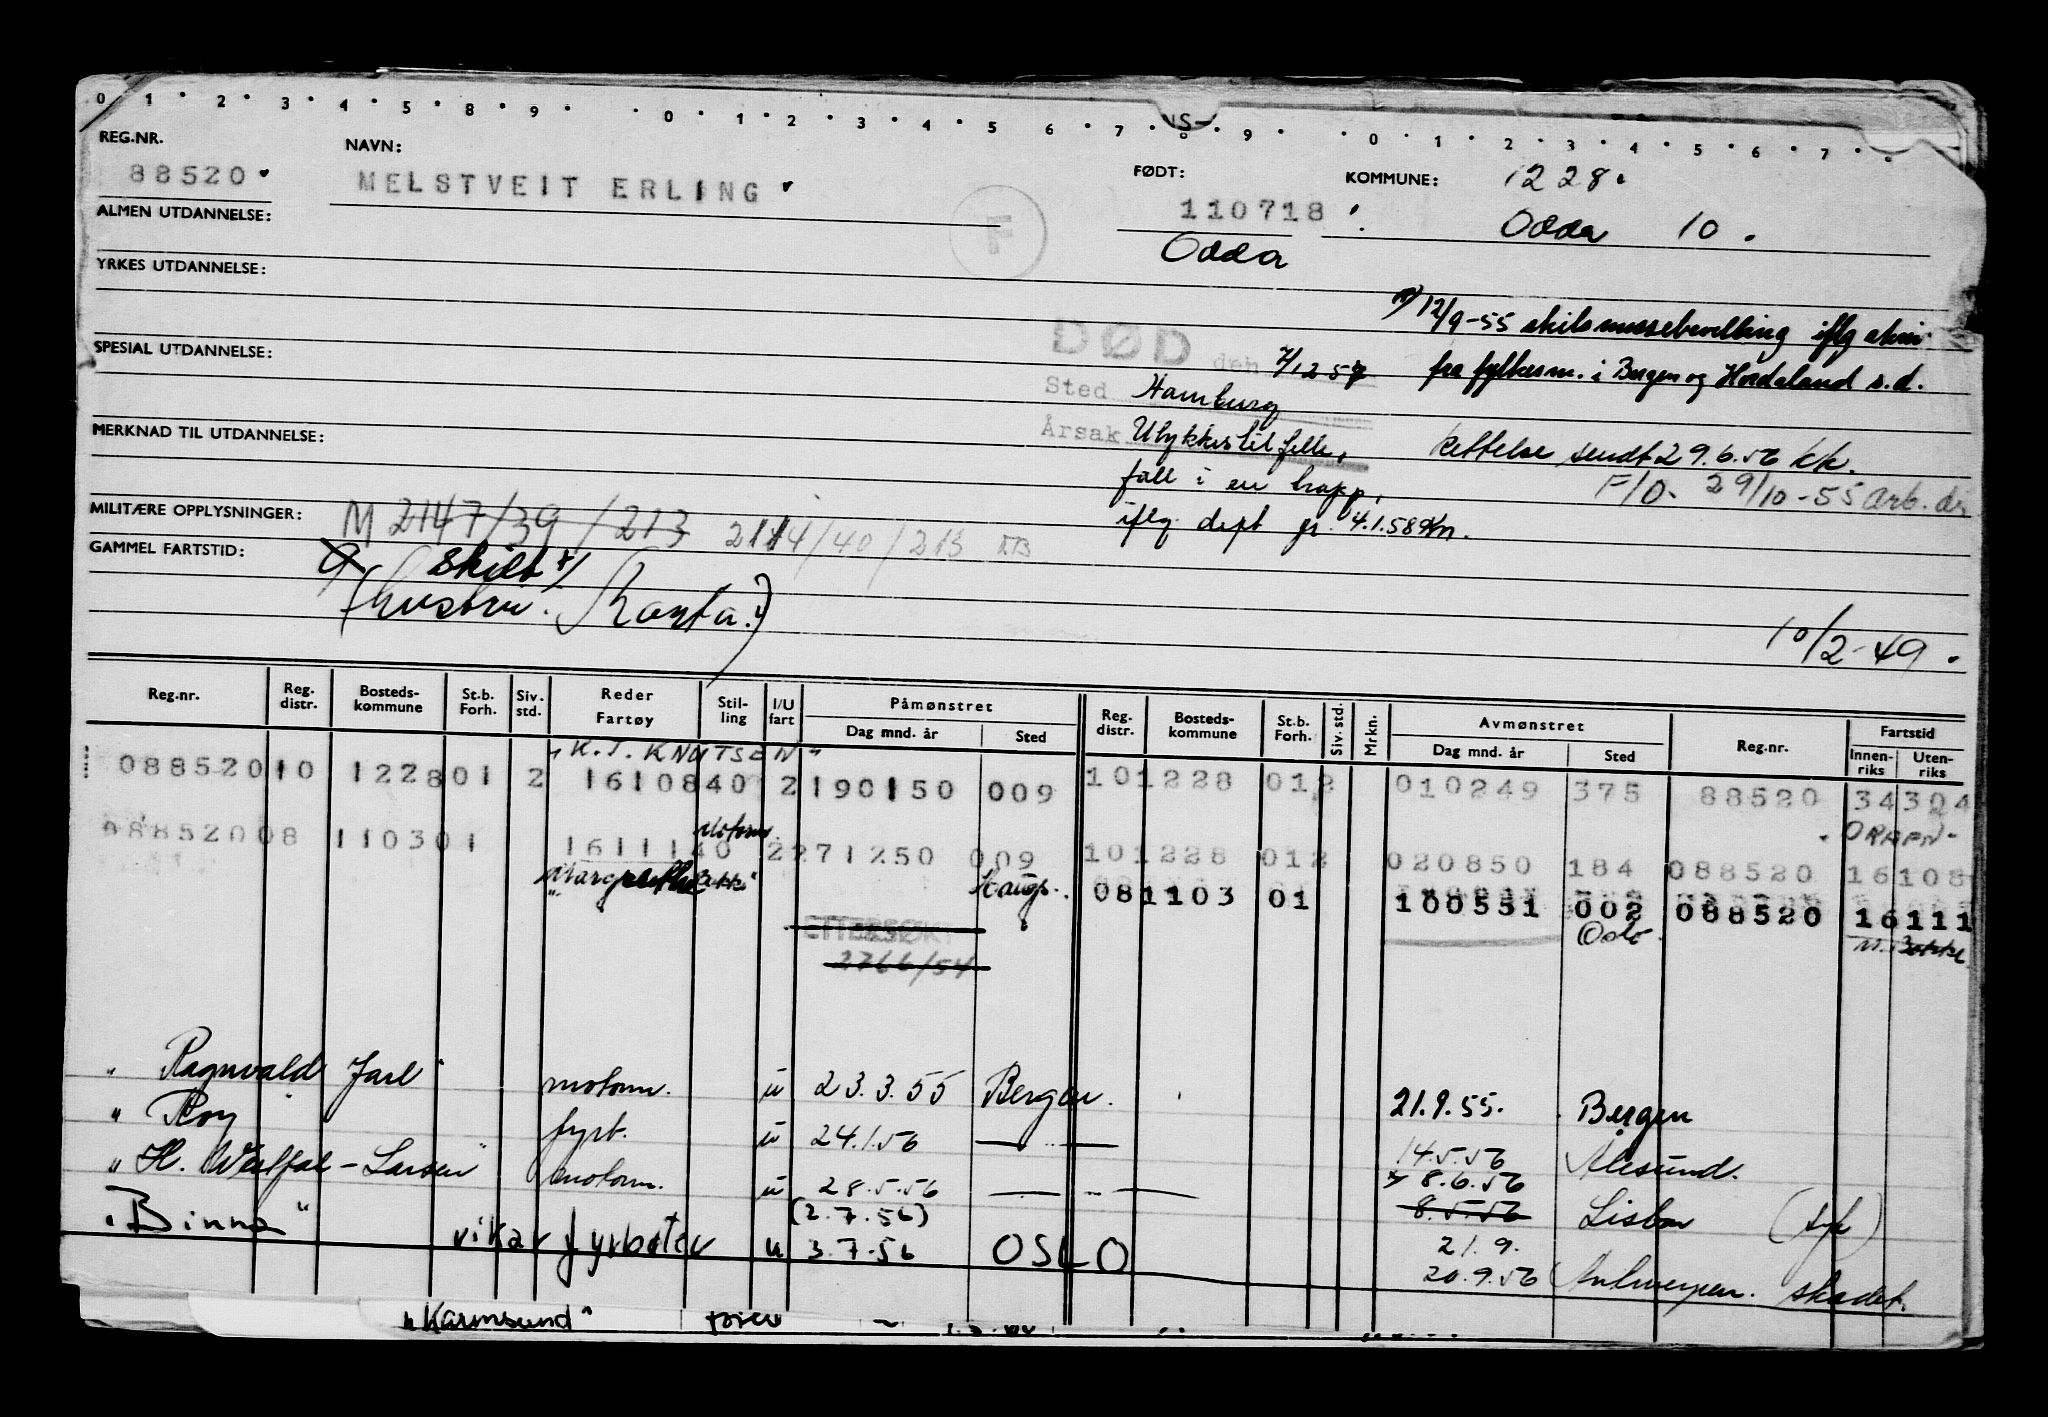 0 1 2 3 4 5 8 9 0 1 2 3 4 5 6 7 8 9 0 1 2 3 4 5 6 7
REG.NR. NAVN: FØDT: KOMMUNE: 1228.
88520 MELSTVEIT ERLING 110718 Odda 10.
F Odda
ALMEN UTDANNELSE:
YRKES UTDANNELSE:
12/9-55 skilsmissebevilling iflg
fra fylkesm. i Bergen og Hordaland s.d.
SPESIAL UTDANNELSE:
DØD den 7/12 57
Sted Hamburg
Årsak Ulykkestilfelle,
fall i en trapp,
iflg. dept gj. 4.1.58
Rettelse sendt 29.6.56 KK.
F/O. 29/10-55 arb. dir
MERKNAD TIL UTDANNELSE:
MILITÆRE OPPLYSNINGER: M 2147/39/213 2114/40/213
GAMMEL FARTSTID: Skilt
(hustru
10/2-49.
Reg.nr. Reg. distr. Bosteds- kommune St.b. Forh. Siv. std. Reder Fartøy Stil- ling I/U fart Påmønstret Dag mnd. år Sted Reg. distr. Bosteds- kommune St.b. Forh. Siv. std. Mrkn. Avmønstret Dag mnd. år Sted Reg.nr. Fartstid Innen- riks Uten- riks
"K.J. KNUTSEN"
088520 10 1228 01 2 16108 40 2 190150 009 10 1228 01 2 010249 375 88520 34 304
"ORAFN"
Motorm.
088520 08 1103 01 16111 40 2 271250 009 10 1228 01 2 020850 184 088520 16108
"Margrethe Bakke" Haugs. 08 1103 01 100551 002 088520 16111
Oslo M. Bakke
ETTERSØKT
2766/54
"Ragnvald Jarl" motorm. u 23.3.55 Bergen. 21.9.55. Bergen
"Roy" fyrb. u 24.1.56 — " — 14.5.56 Ålesund.
"H. Westfal-Larsen" motorm. u 28.5.56 — " — 8.6.56
(2.7.56) 8.5.56 Lisboa (syk)
"Binna" vikar fyrbøter u 3.7.56 OSLO 21.9.
20.9.56 Antwerpen. skadet.
"Karmsund"